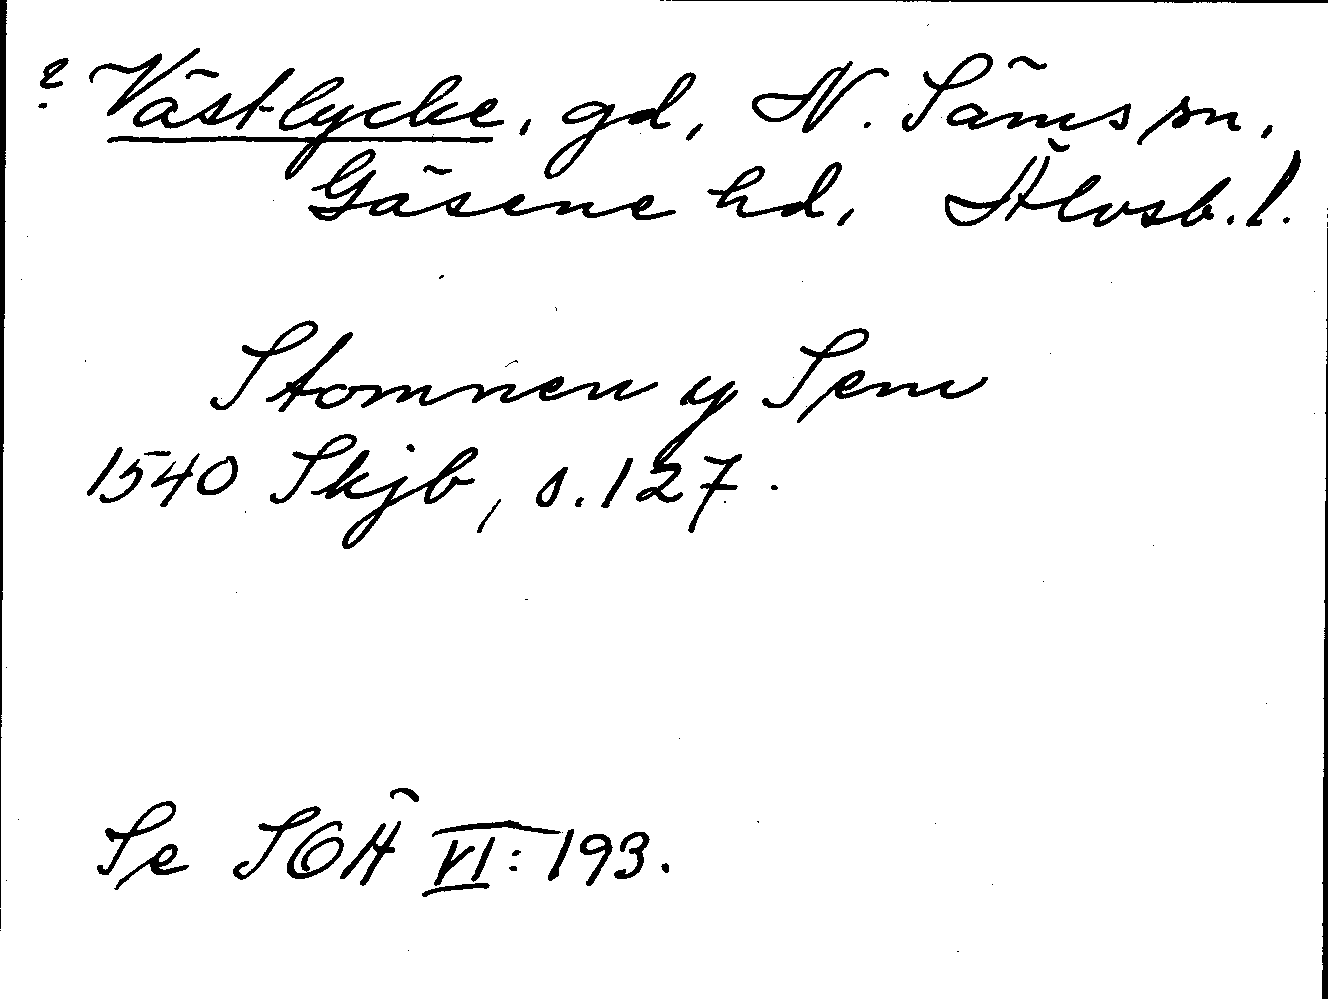 ? Västlycke, gd, N. Säms sn,
Gäsene hd, Älvsb. l.
Stomnen y Sem
1540 Skjb, s. 127.
Se SOÄ VI: 193.